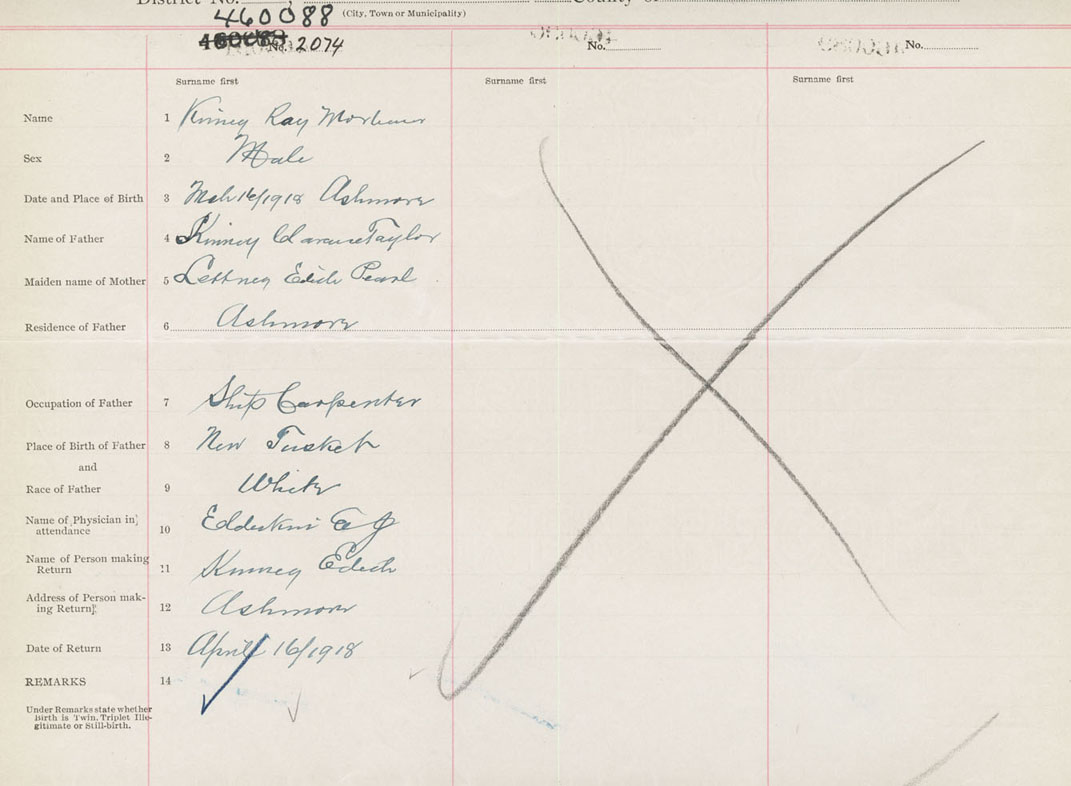 District No.
County of
460088
(City, Town or Municipality)
No. 2074
No.
No.
Surname first
Surname first
Surname first
Name 1 Kinney Ray Mortimer
Sex 2 Male
Date and Place of Birth 3 Mch 16/1918 Ashmore
Name of Father 4 Kinney Clarence Taylor
Maiden name of Mother 5 Edith Pearl
Residence of Father 6 Ashmore
Occupation of Father 7 Ship Carpenter
Place of Birth of Father 8 New Tusket
and
Race of Father 9 White
Name of Physician in
attendance
10
Name of Person making
Return
11 Kinney Edith
Address of Person mak-
ing Return
12 Ashmore
Date of Return 13 April 16/1918
REMARKS 14
Under Remarks state whether
Birth is Twin, Triplet Ille-
gitimate or Still-birth.